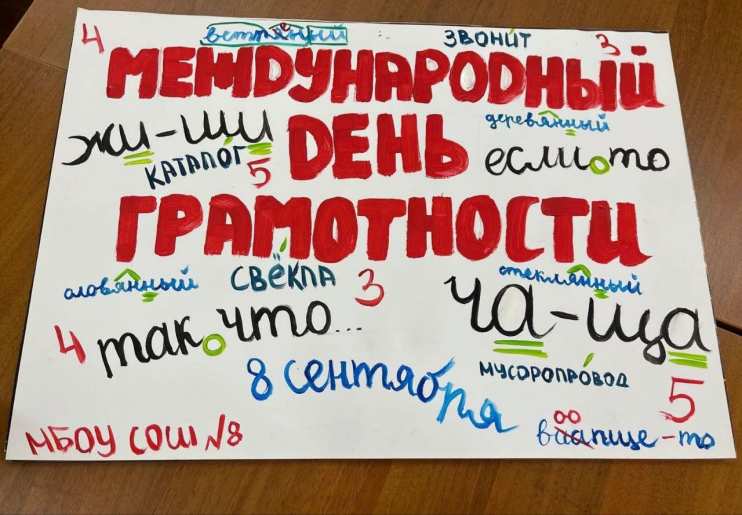 4 ветряный ЗВОНИТ 3
МЕЖДУНАРОДНЫЙ
жи-ши ДЕНЬ деревянный
КАТАЛОГ 5 если то
ГРАМОТНОСТИ
оловянный СВЁКЛА 3 стеклянный
4 так что... ча-ща
8 сентября МУСОРОПРОВОД 5
МБОУ СОШ №8 ваапще-то
оо